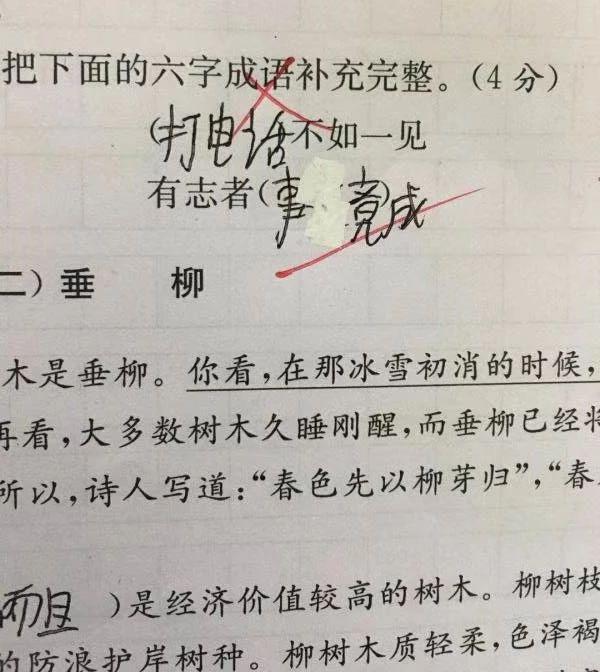 把下面的六字成语补充完整。(4分)
(打电话不如一见
有志者(事竟成)
二)垂 柳
木是垂柳。你看,在那冰雪初消的时候,
再看,大多数树木久睡刚醒,而垂柳已经将
所以,诗人写道:“春色先以柳芽归”,“春
而且 )是经济价值较高的树木。柳树枝
的防浪护岸树种。柳树木质轻柔,色泽褐